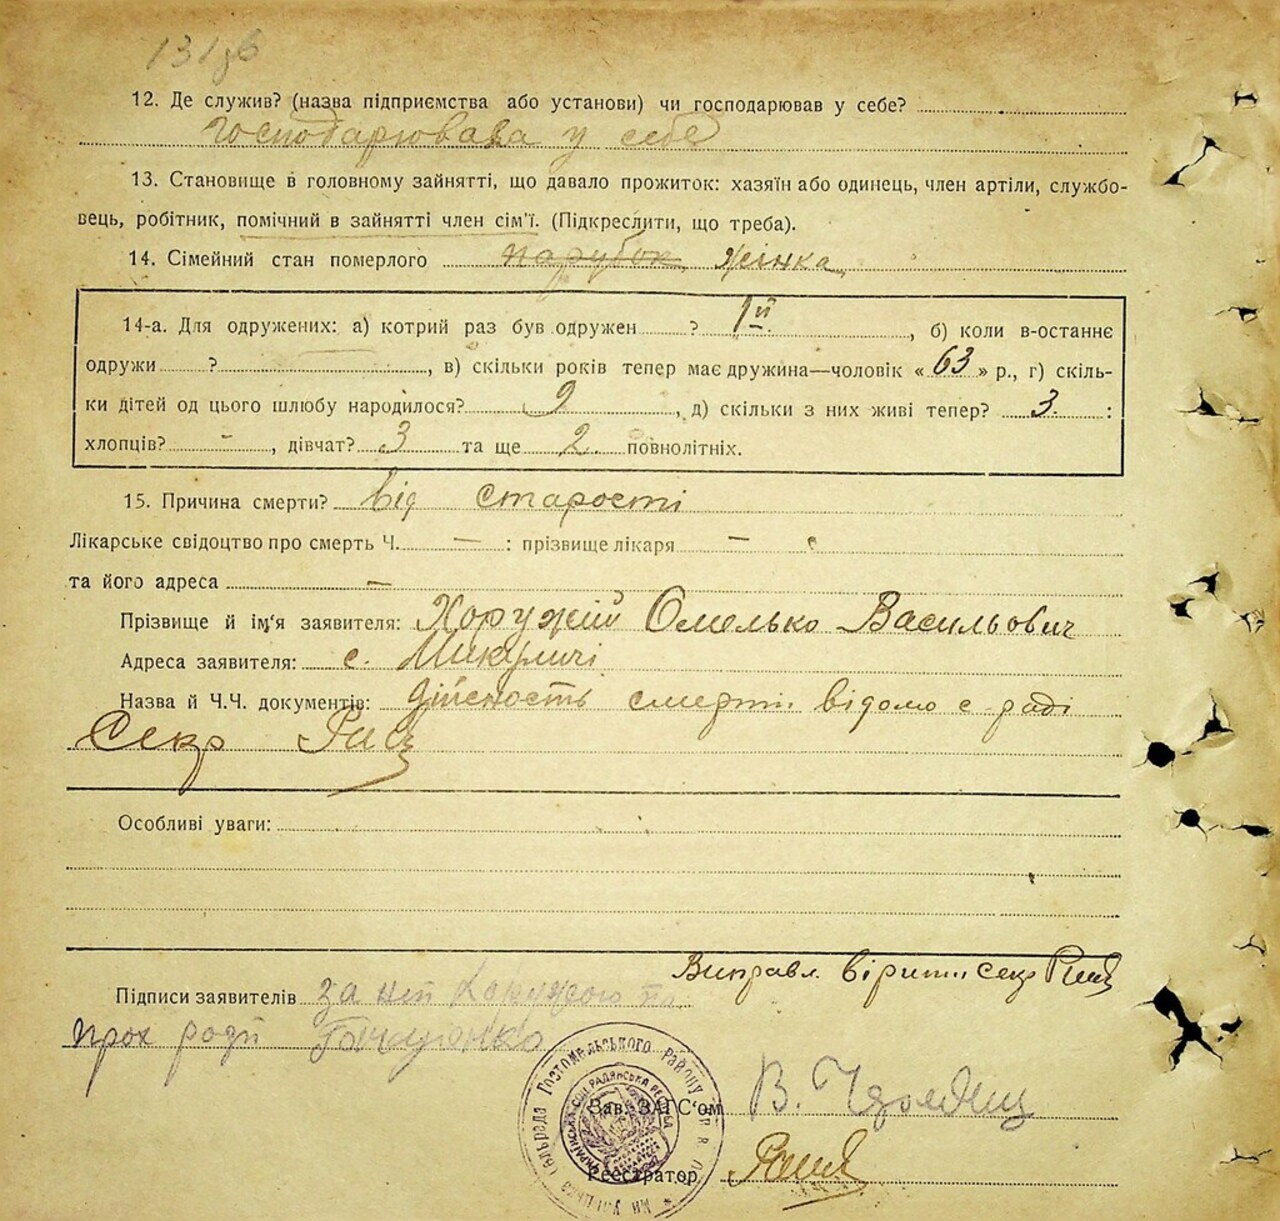 131зв
12. Де служив? (назва підприємства або установи) чи господарював у себе?
господарювала у себе
13. Становище в головному зайнятті, що давало прожиток: хазяїн або одинець, член артіли, службо-
вець, робітник, помічний в зайнятті член сім'ї. (Підкреслити, що треба).
14. Сімейний стан померлого парубок жінка
14-а. Для одружених: а) котрий раз був одружен ? 1й, б) коли в-останнє
одружи ? , в) скільки років тепер має дружина—чоловік « 63 » р., г) скіль-
ки дітей од цього шлюбу народилося? 9, д) скільки з них живі тепер? 3. :
хлопців? -, дівчат? 3 та ще 2 повнолітніх.
15. Причина смерти? від старості
Лікарське свідоцтво про смерть Ч. — : прізвище лікаря —
та його адреса —
Прізвище й ім'я заявителя: Хоружій Омелько Васильович
Адреса заявителя: с. Микуличі
Назва й Ч.Ч. документів: Дійсность смерти відомо с-раді
Секр
Особливі уваги:
Виправл. вірити секр
Підписи заявителів за
прох
Гостомельського району
Зав. ЗАГС'ом В.
Реєстратор